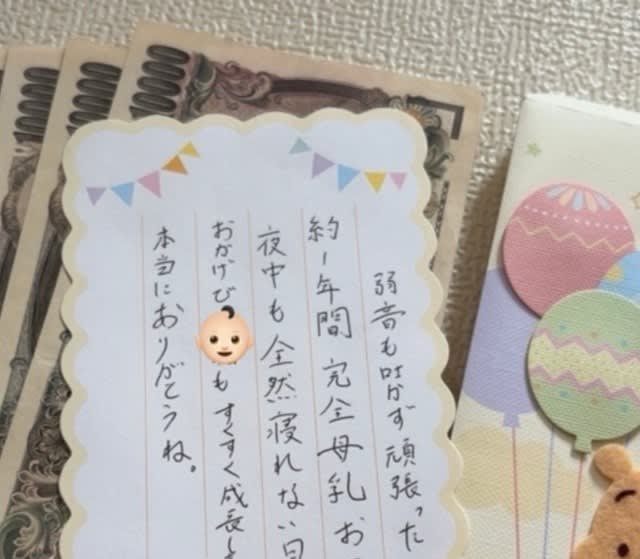 弱音も吐かず頑張った
約1年間 完全母乳 お
夜中も全然寝れない日
おかげで も すくすく成長し
本当にありがとうね。